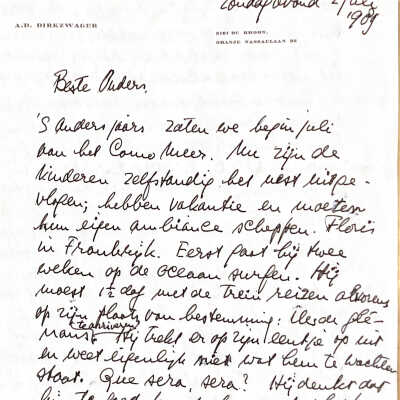 Zondagavond 2 juli
1989
A.D. DIRKZWAGER
ORANJE NASSAULAAN 28
Beste Anders,
'S Anders jaars zaten we begin juli
aan het Como Meer. Nu zijn de
kinderen zelfstandig het nest uitge-
vlogen; hebben vakantie en moeten
hun eigen ambiance scheppen. Floris
in Frankrijk. Eerst gaat hij twee
weken op de oceaan surfen. Hij
moest 1½ dag met de trein reizen alvorens
op zijn plaats van bestemming: Iles de Glé-
nans te arriveren. Hij trekt er op zijn eentje op uit
en weet eigenlijk niet wat hem te wachten
staat. Que sera, sera? Hij denkt dat